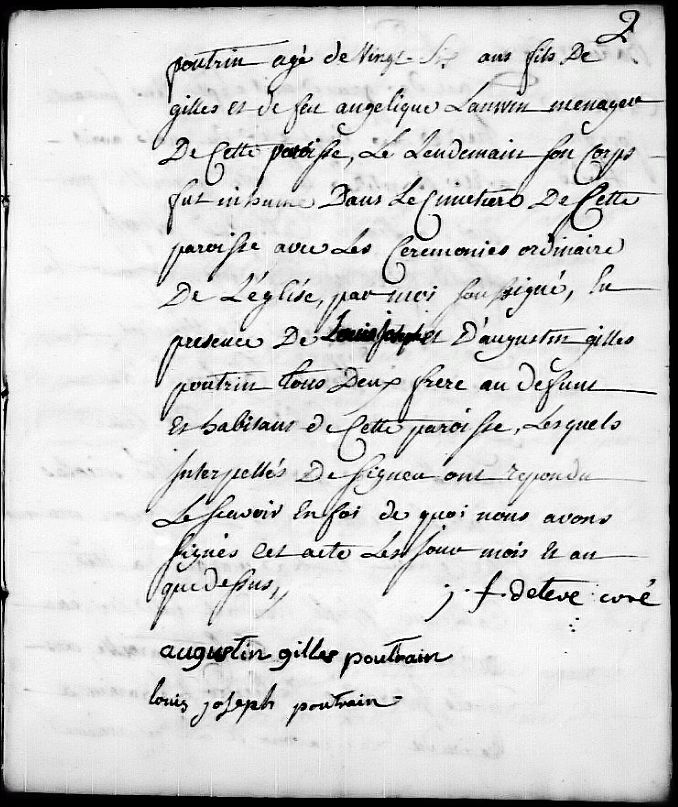 2
poutrin agé de Vingt Six ans fils De
gilles et de feu angelique Lanvin menager
De Cette paroisse, Le Lendemain son Corps
fut inhumé Dans Le Cimetiere De Cette
paroisse avec Les Ceremonies ordinaire
De L'église, par moi soussigné, En
presence De Louis joseph et D'augustin gilles
poutrin tous Deux frere au defunt
Et habitans de Cette paroisse, Lesquels
Interpellés De signer ont repondu
Le scavoir En foi de quoi nous avons
signés cet acte Les jour mois Et an
que dessus,,
j. f. deteve curé
augustin gilles poutrain
louis joseph poutrain